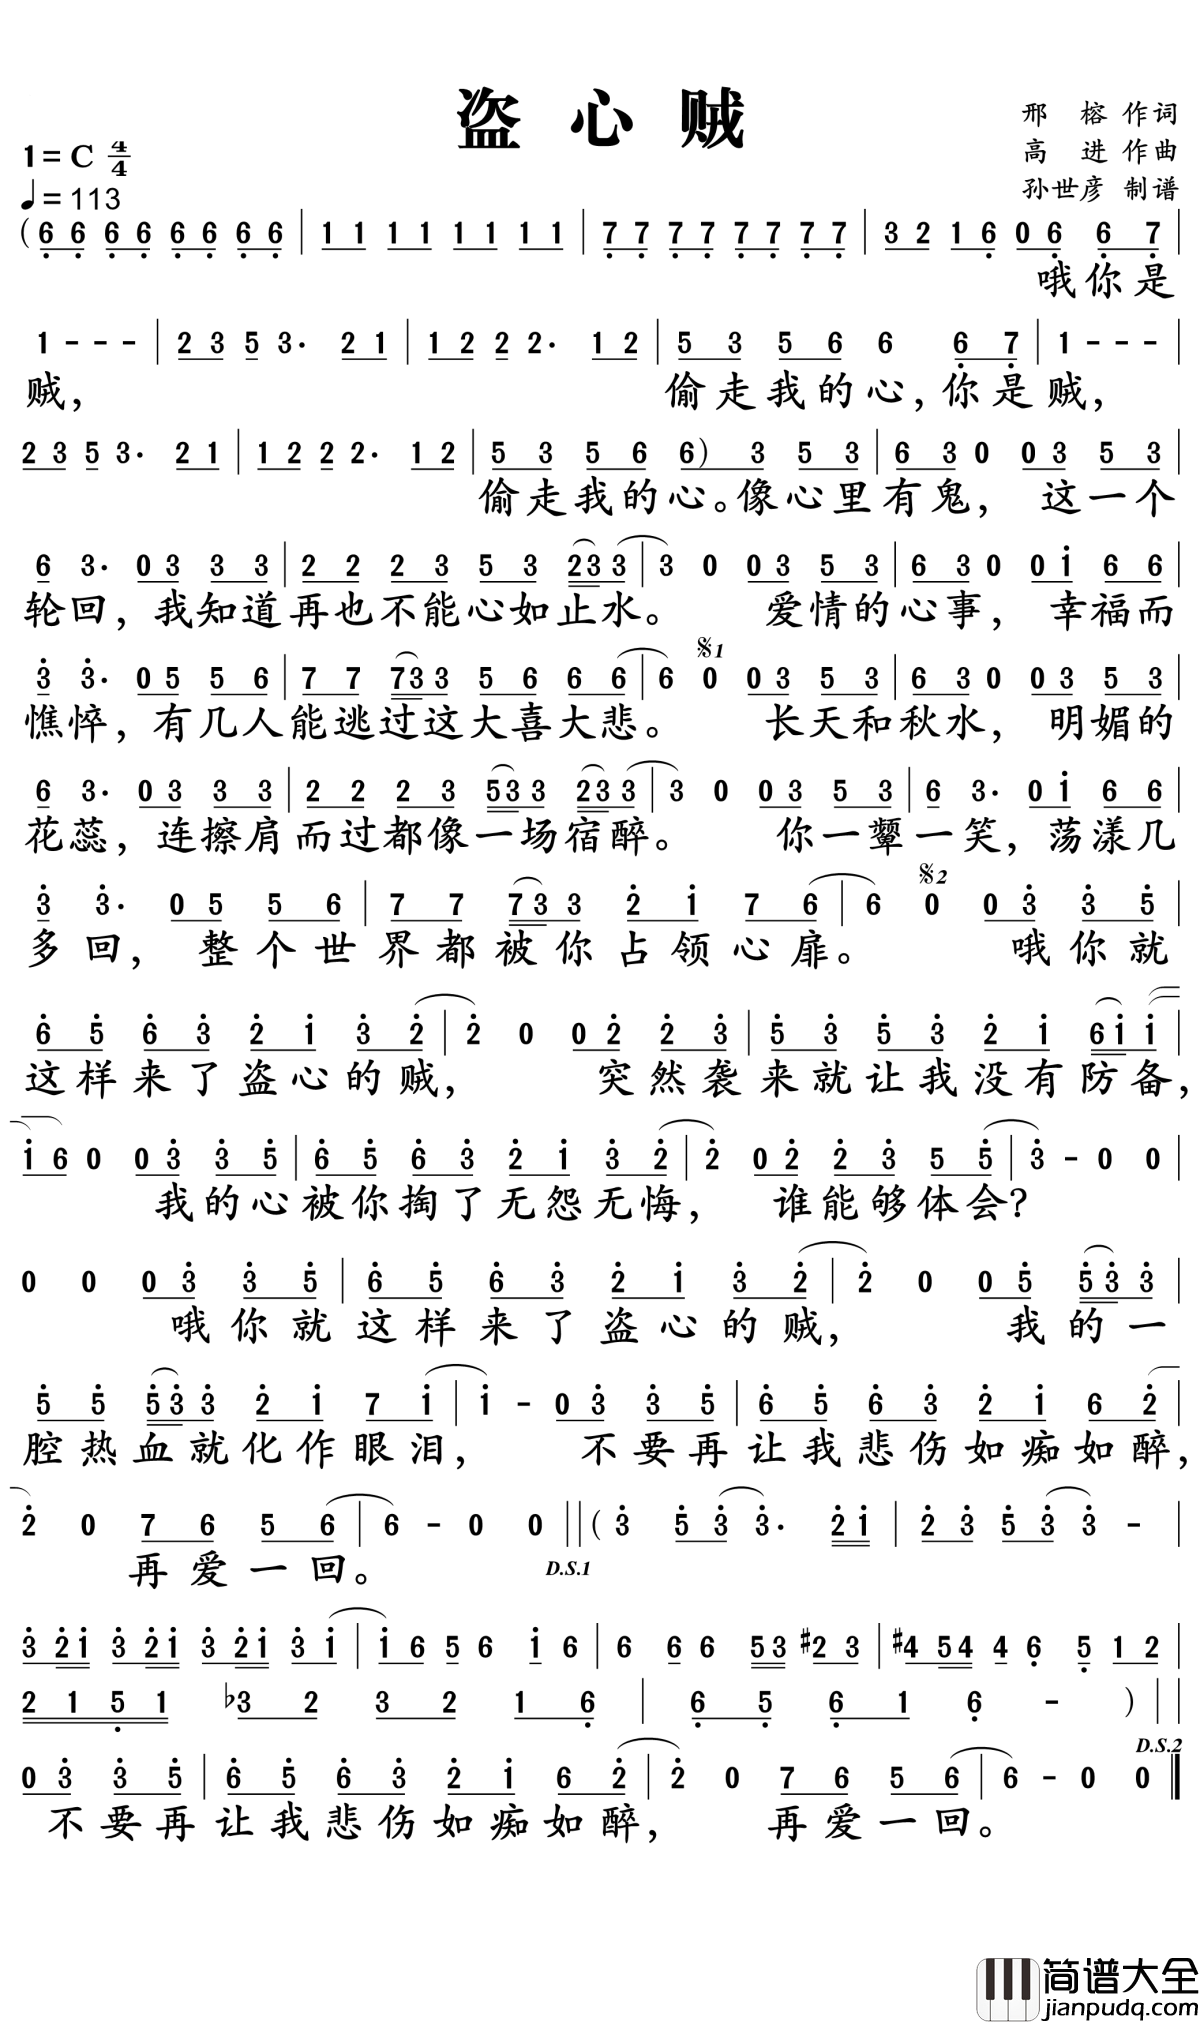 盗心贼
邢 榕 作词
1=C 4/4
高 进 作曲
♩=113
孙世彦 制谱
(6 6 6 6 6 6 6 6 | 1 1 1 1 1 1 1 1 | 7 7 7 7 7 7 7 7 | 3 2 1 6 0 6 6 7 |
哦你是
1 - - - | 2 3 5 3· 2 1 | 1 2 2 2· 1 2 | 5 3 5 6 6 6 7 | 1 - - - |
贼, 偷走我的心,你是贼,
2 3 5 3· 2 1 | 1 2 2 2· 1 2 | 5 3 5 6 6) 3 5 3 | 6 3 0 0 3 5 3 |
偷走我的心。像心里有鬼, 这一个
6 3· 0 3 3 3 | 2 2 2 3 5 3 2 3 3 | 3 0 0 3 5 3 | 6 3 0 0 i 6 6 |
轮回,我知道再也不能心如止水。 爱情的心事, 幸福而
𝄋1
3 3· 0 5 5 6 | 7 7 7 3 3 5 6 6 6 | 6 0 0 3 5 3 | 6 3 0 0 3 5 3 |
憔悴,有几人能逃过这大喜大悲。 长天和秋水, 明媚的
6 3· 0 3 3 3 | 2 2 2 3 5 3 3 2 3 3 | 3 0 0 3 5 3 | 6 3· 0 i 6 6 |
花蕊,连擦肩而过都像一场宿醉。 你一颦一笑,荡漾几
𝄋2
3 3· 0 5 5 6 | 7 7 7 3 3 2 i 7 6 | 6 0 0 3 3 5 |
多回, 整个世界都被你占领心扉。 哦你就
6 5 6 3 2 i 3 2 | 2 0 0 2 2 3 | 5 3 5 3 2 i 6 i i |
这样来了盗心的贼, 突然袭来就让我没有防备,
i 6 0 0 3 3 5 | 6 5 6 3 2 i 3 2 | 2 0 2 2 3 5 5 | 3 - 0 0 |
我的心被你掏了无怨无悔, 谁能够体会?
0 0 0 3 3 5 | 6 5 6 3 2 i 3 2 | 2 0 0 5 5 3 3 |
哦你就这样来了盗心的贼, 我的一
5 5 5 3 3 2 i 7 i | i - 0 3 3 5 | 6 5 6 3 2 i 6 2 |
腔热血就化作眼泪, 不要再让我悲伤如痴如醉,
2 0 7 6 5 6 | 6 - 0 0 || (3 5 3 3· 2 i | 2 3 5 3 3 - |
再爱一回。 D.S.1
3 2 i 3 2 i 3 2 i 3 i | i 6 5 6 i 6 | 6 6 6 5 3 #2 3 | #4 5 4 4 6 5 1 2 |
2 1 5 1 b3 2 3 2 1 6 | 6 5 6 1 6 - ) ||
D.S.2
0 3 3 5 | 6 5 6 3 2 i 6 2 | 2 0 7 6 5 6 | 6 - 0 0 ||
不要再让我悲伤如痴如醉, 再爱一回。
简谱大全
jianpudq.com